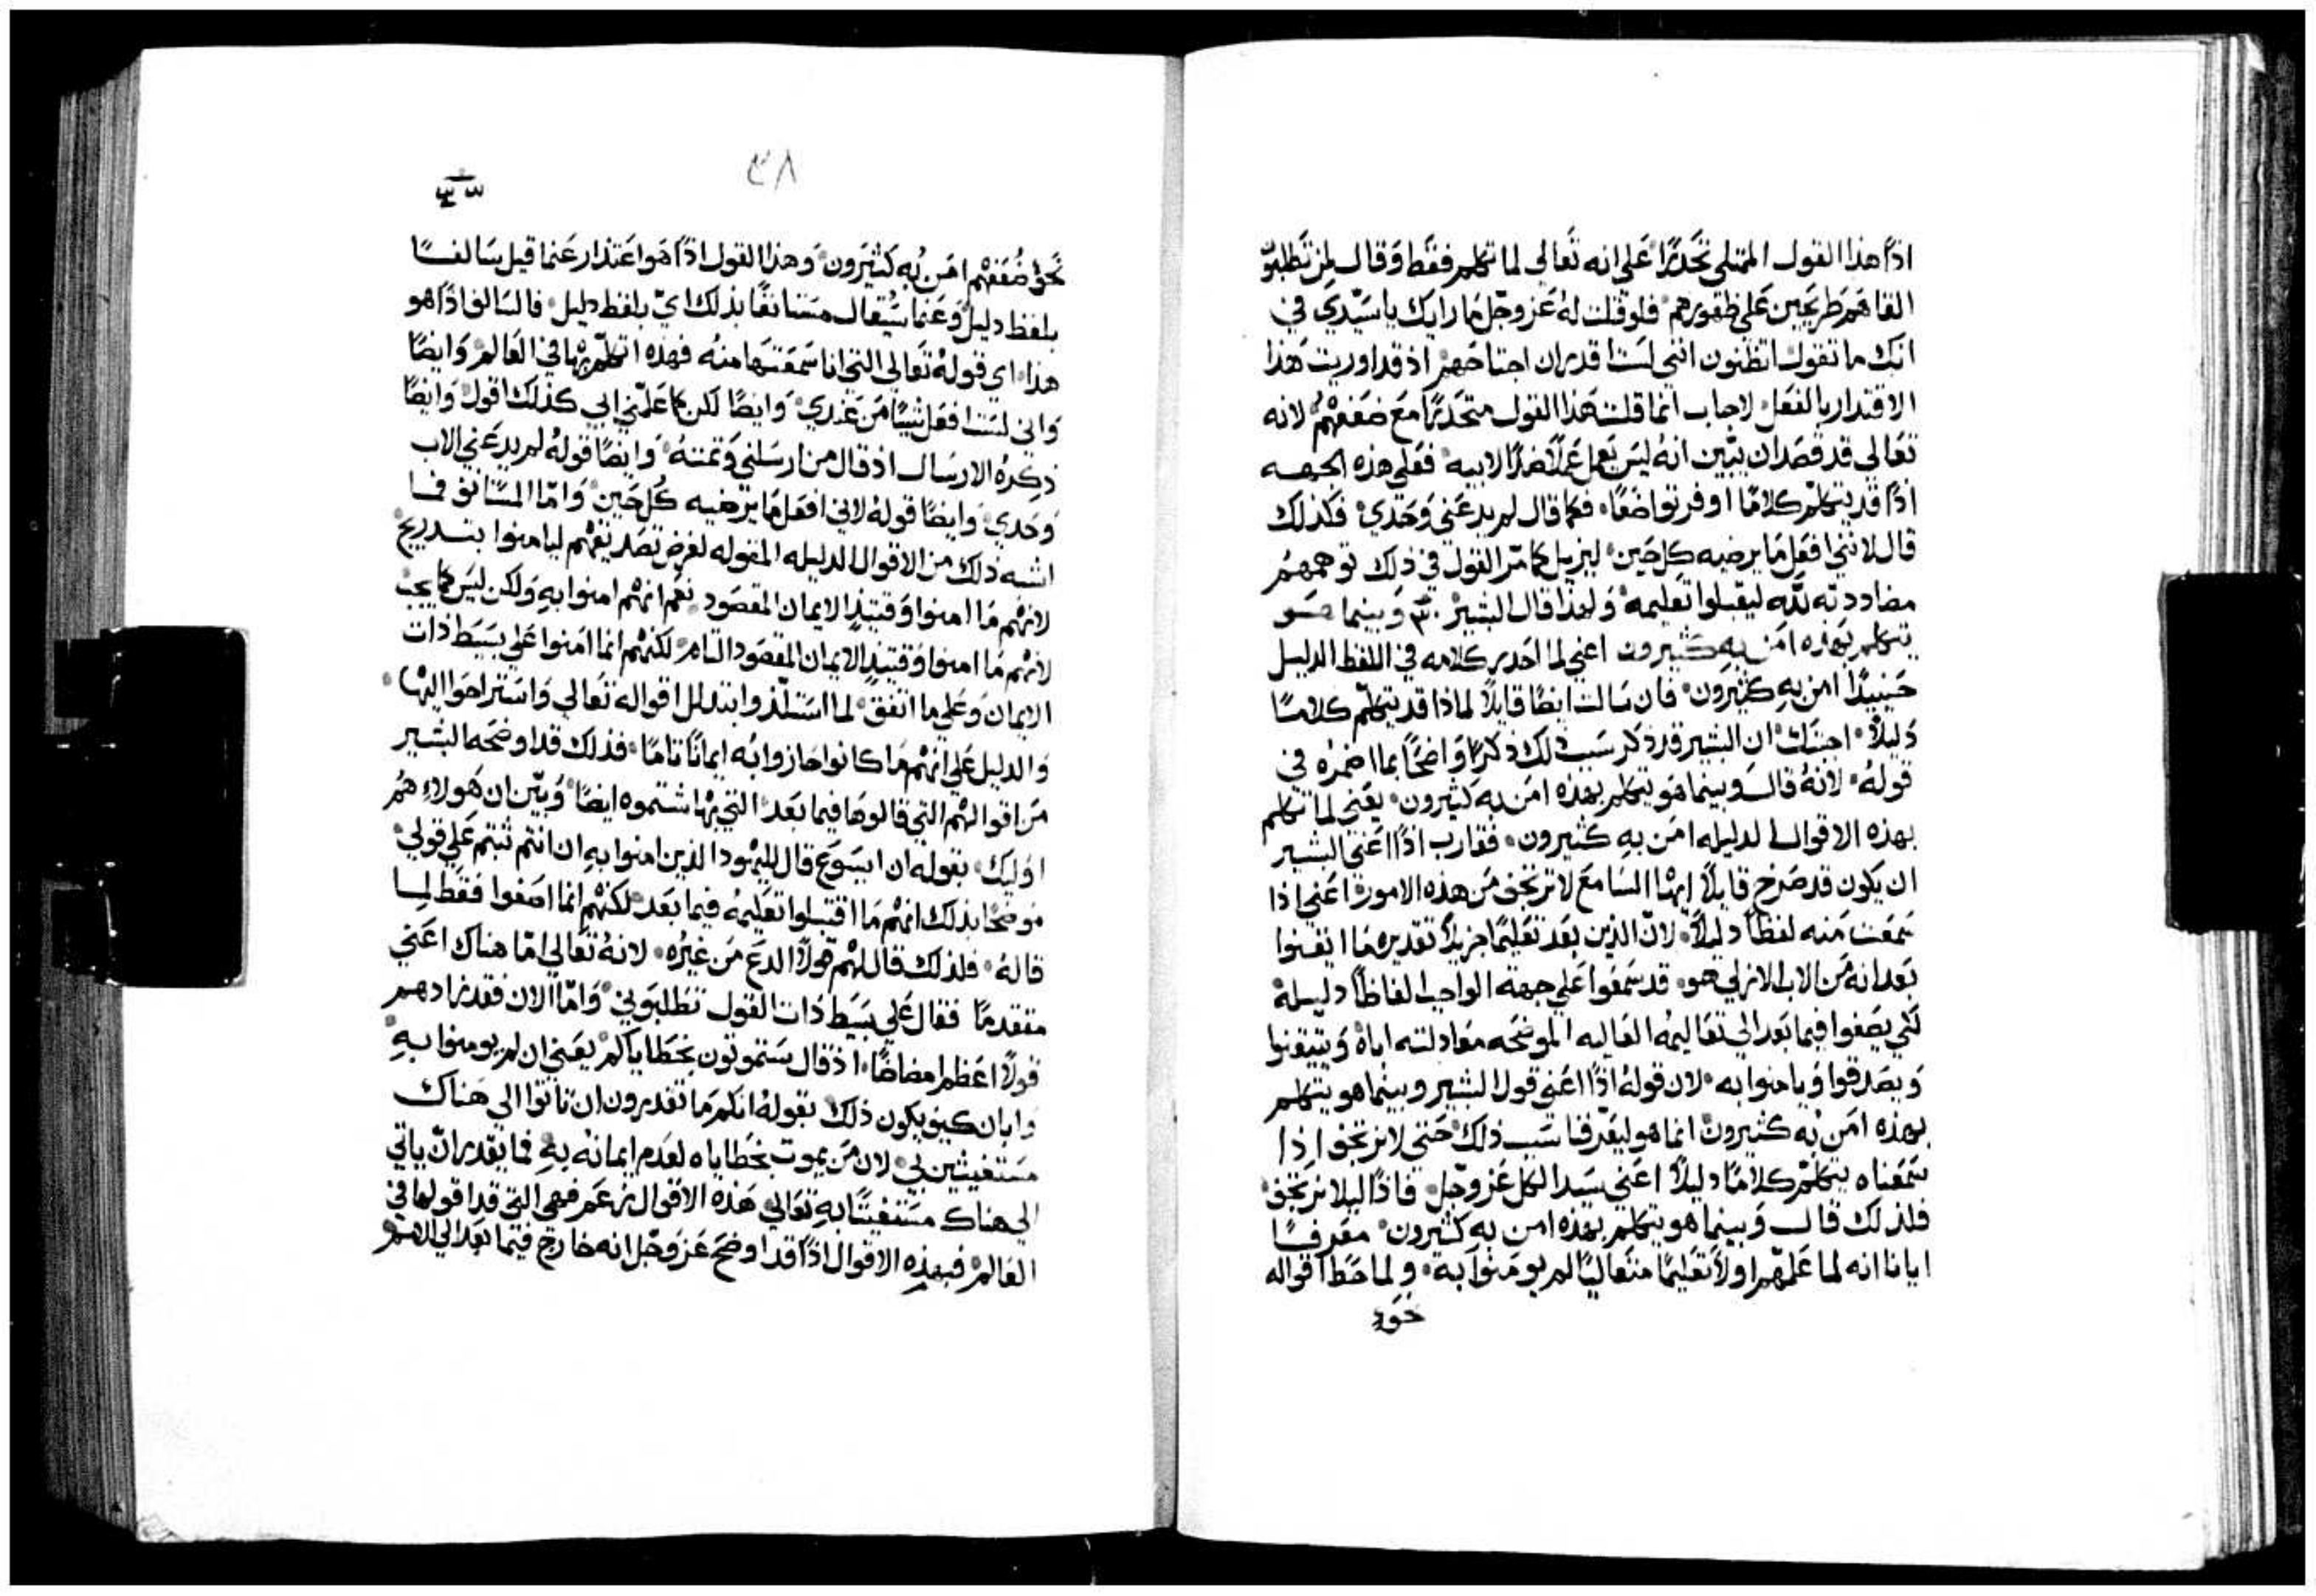 اذًا هذا القول الممتلي تحديرًا علي انه تعالي لما تكلم فقط وقال لمن تطلبوا
القاهم طريحين علي ظهورهم فلو قلت له عز وجل ما رايك يا سيدي في
انك ما تقول اتظنون انني لست اقدر ان اجتاحهم اذ قد اوريت هذا
الاقتدار بالفعل لاجاب انما قلت هذا القول متحدرًا مع ضعفهم لانه
تعالي قد قصد ان يبين انه ليس يعمل عملًا ضدًا لابيه فعلي هذه الجهه
اذًا قد يتكلم كلامًا اوفر تواضعًا فكما قال لم يدعني وحدي فكذلك
قال لانني افعل ما يرضيه كل حين ليزيل كما مر القول في ذلك توهمهم
مضاددته لله ليقبلوا تعليمه ولهذا قال البشير وبينما هو
يتكلم بهذه امن به كثيرون اعني لما احدر كلامه في اللفظ الدليل
حينيدًا امن به كثيرون فان سالت ايضًا قايلًا لماذا قد يتكلم كلامًا
دليلًا اجبتك ان البشير قد ذكر سبب ذلك ذكرًا واضحًا بما اضمره في
قوله لانه قال وبينما هو يتكلم بهذه امن به كثيرون يعني لما تكلم
بهذه الاقوال الدليله امن به كثيرون فقارب اذًا اعني البشير
ان يكون قد صرخ قايلًا ايها السامع لا ترتجف من هذه الامور اعني اذا
سمعت منه لفظًا دليلًا لان الذين بعد تعليمًا جزيلًا تقديره ما اتقنوا
بعد انه من الاب الازلي هو قد سمعوا علي جهة الواجب الفاظًا دليلة
لكي يصغوا فيما بعد الي تعاليمه العاليه الموضحه معادلته اباه ويتيقنوا
ويصدقوا ويامنوا به لان قوله اذًا اعني قول البشير وبينما هو يتكلم
بهذه امن به كثيرون انما هو ليعرفنا سبب ذلك حتي لا نرتجف اذا
سمعناه يتكلم كلامًا دليلًا اعني سيد الكل عز وجل فاذًا ليلا نرتجف
فلذلك قال وبينما هو يتكلم بهذه امن به كثيرون معرفًا
ايانا انه لما علمهم اولًا تعليمًا متعاليًا لم يومنوا به ولما حط اقواله
نحو
٤٨
نحو ضعفهم امن به كثيرون وهذا القول اذًا هو اعتذار عنما قيل سالفًا
بلفظ دليل وعنما سيقال مستانفًا بذلك اي بلفظ دليل فالسالف اذًا هو
هذا اي قوله تعالي التي انا سمعتها منه فهذه اتكلم بها في العالم وايضًا
واني لست افعل شييًا من عندي وايضًا لكن كما علمني ابي كذلك اقول وايضًا
ذكره الارسال اذ قال من ارسلني وتمته وايضًا قوله لم يدعني الاب
وحدي وايضًا قوله لاني افعل ما يرضيه كل حين واما المستانف فما
اشبه ذلك من الاقوال الدليله المقوله لغرض تصديقهم ليامنوا بتدريج
لانهم ما امنوا وقتيذٍ الايمان المقصود نعم انهم امنوا به ولكن ليس كما يجب
لانهم ما امنوا وقتيذٍ الايمان المقصود التام لكنهم انما امنوا علي بسيط ذات
الايمان وعلي ما اتفق لما استلذوا بتدلل اقواله تعالي واستراحوا اليها
والدليل علي انهم ما كانوا حازوا به ايمانًا تامًا فذلك قد اوضحه البشير
من اقوالهم التي قالوها فيما بعد التي بها شتموه ايضًا وبين ان هولاء هم
اوليك بقوله ان ايسوع قال لليهود الذين امنوا به ان انتم ثبتم علي قولي
موضحًا بذلك انهم ما اقتبلوا تعليمه فيما بعد لكنهم انما اصغوا فقط لما
قاله فلذلك قال لهم قولًا الدع من غيره لانه تعالي اما هناك اعني
متقدمًا فقال علي بسيط ذات القول تطلبوني واما الان فقد زادهم
قولًا اعظم امضاضًا اذ قال ستموتون بخطاياكم يعني ان لم يومنوا به
وابان كيف يكون ذلك بقوله انكم ما تقدرون ان تاتوا الي هناك
مستغيثين بي لان من يموت بخطاياه لعدم ايمانه به فما يقدر ان ياتي
الي هناك مستغيثًا به تعالي هذه الاقوال زعم فهي التي قد اقولها في
العالم فبهذه الاقوال اذًا قد اوضح عز وجل انه خارج فيما بعد الي الامم